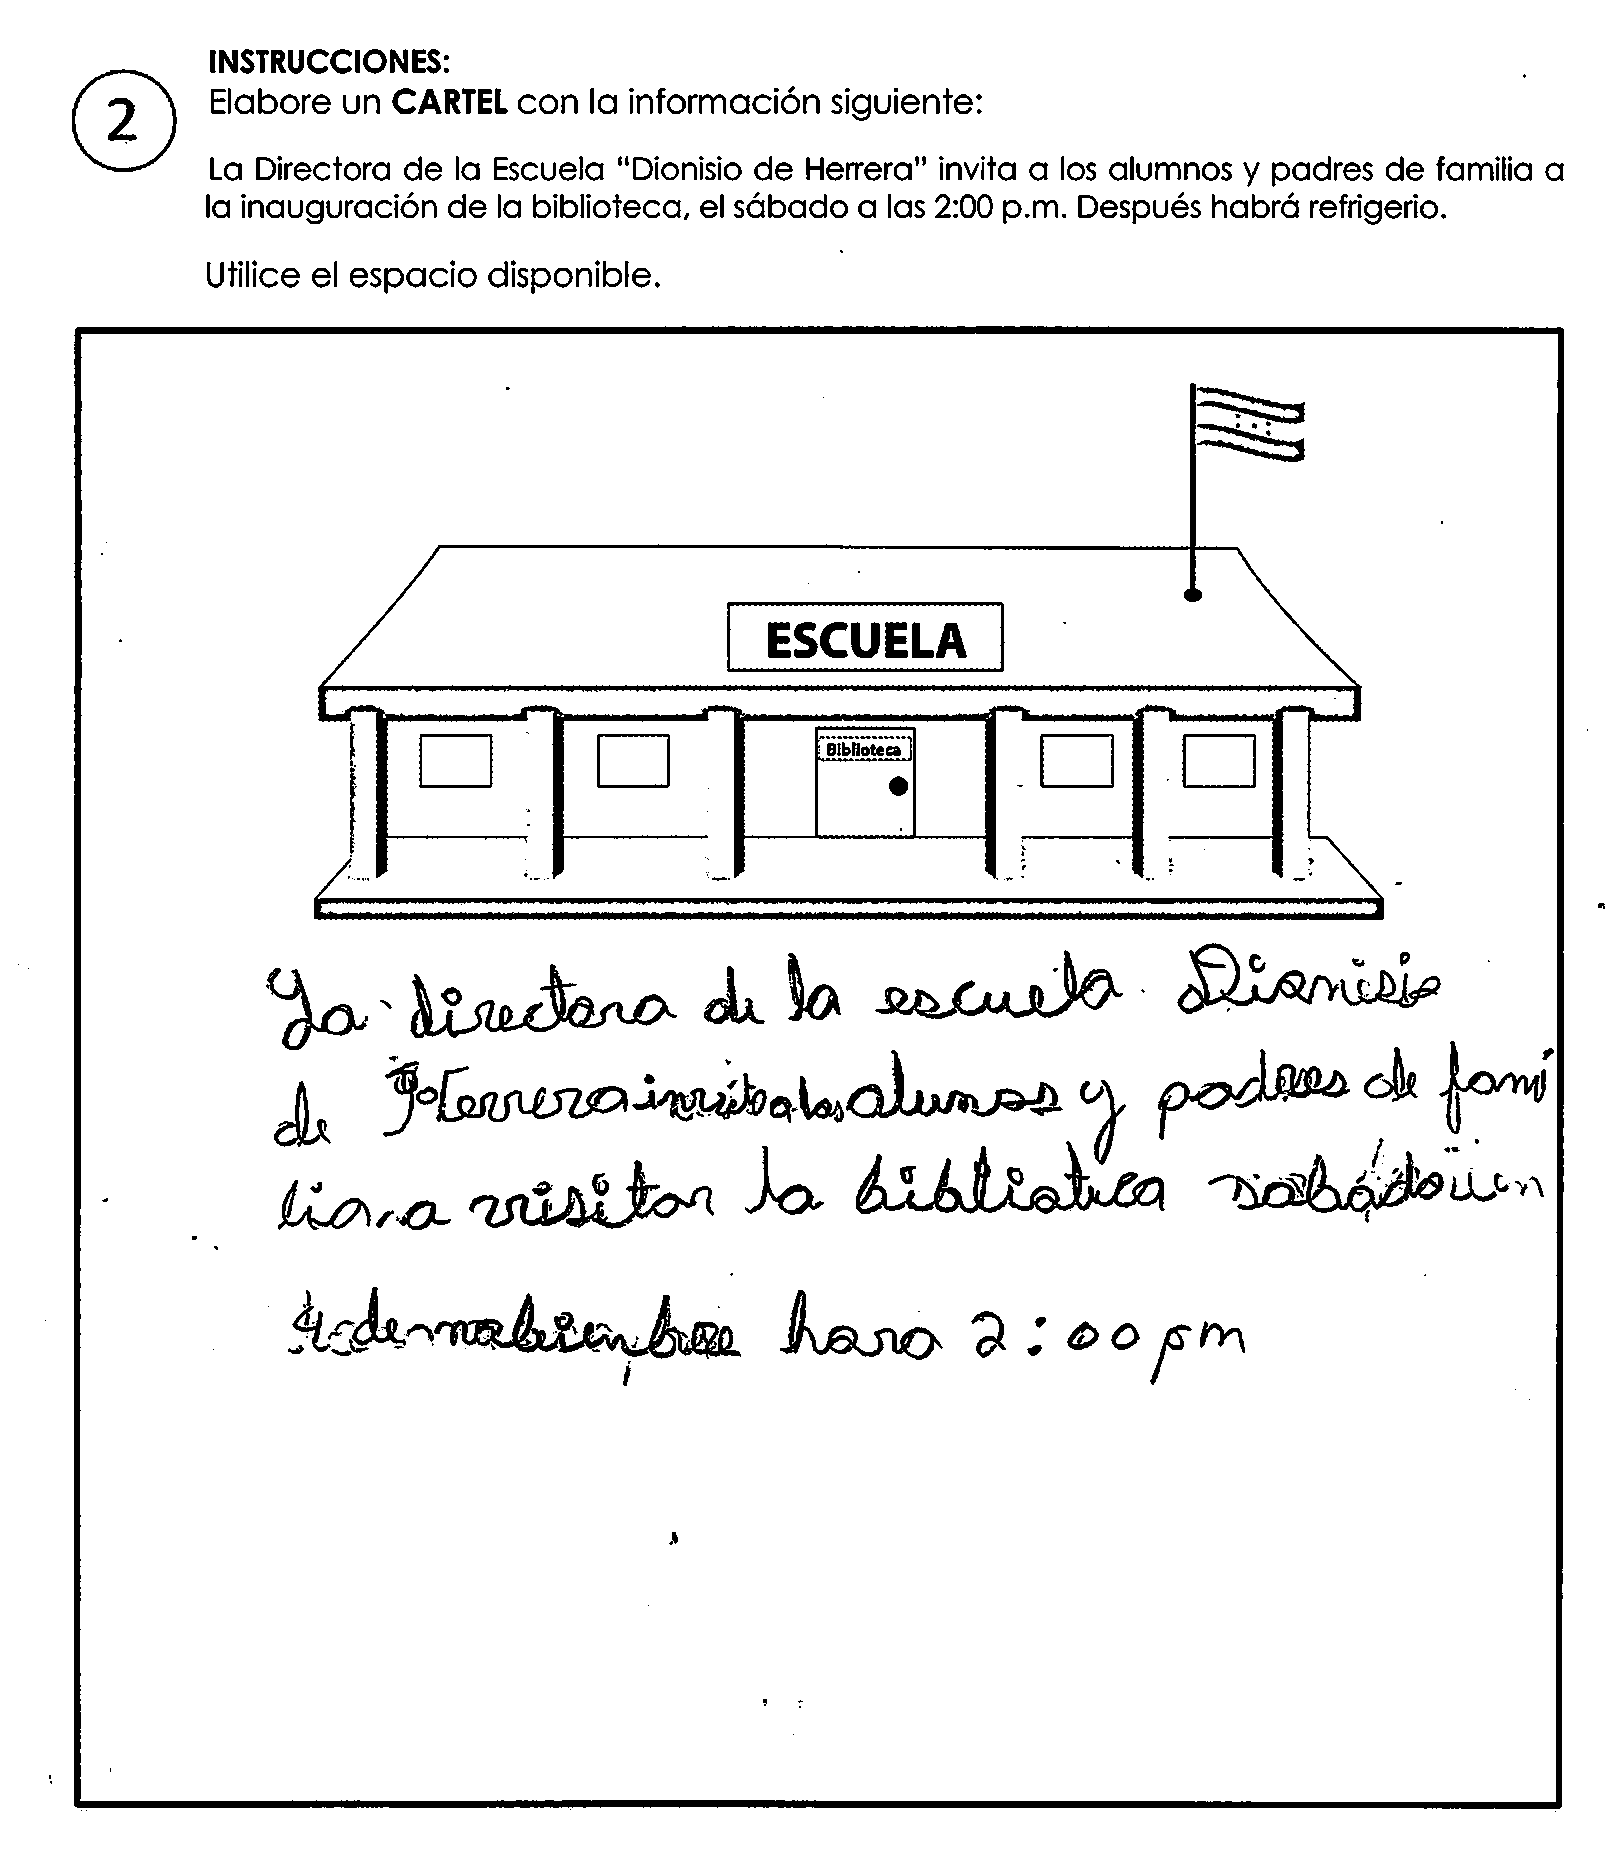 INSTRUCCIONES:
2
Elabore un CARTEL con la información siguiente:
La Directora de la Escuela "Dionisio de Herrera" invita a los alumnos y padres de familia a
la inauguración de la biblioteca, el sábado a las 2:00 p.m. Después habrá refrigerio.
Utilice el espacio disponible.
ESCUELA
Biblioteca
La directora de la escuela Dionisio
de Herrera invita a los alumnos y padres de fami
lia a visitar la biblioteca sabado
4 de hora 2:00 pm